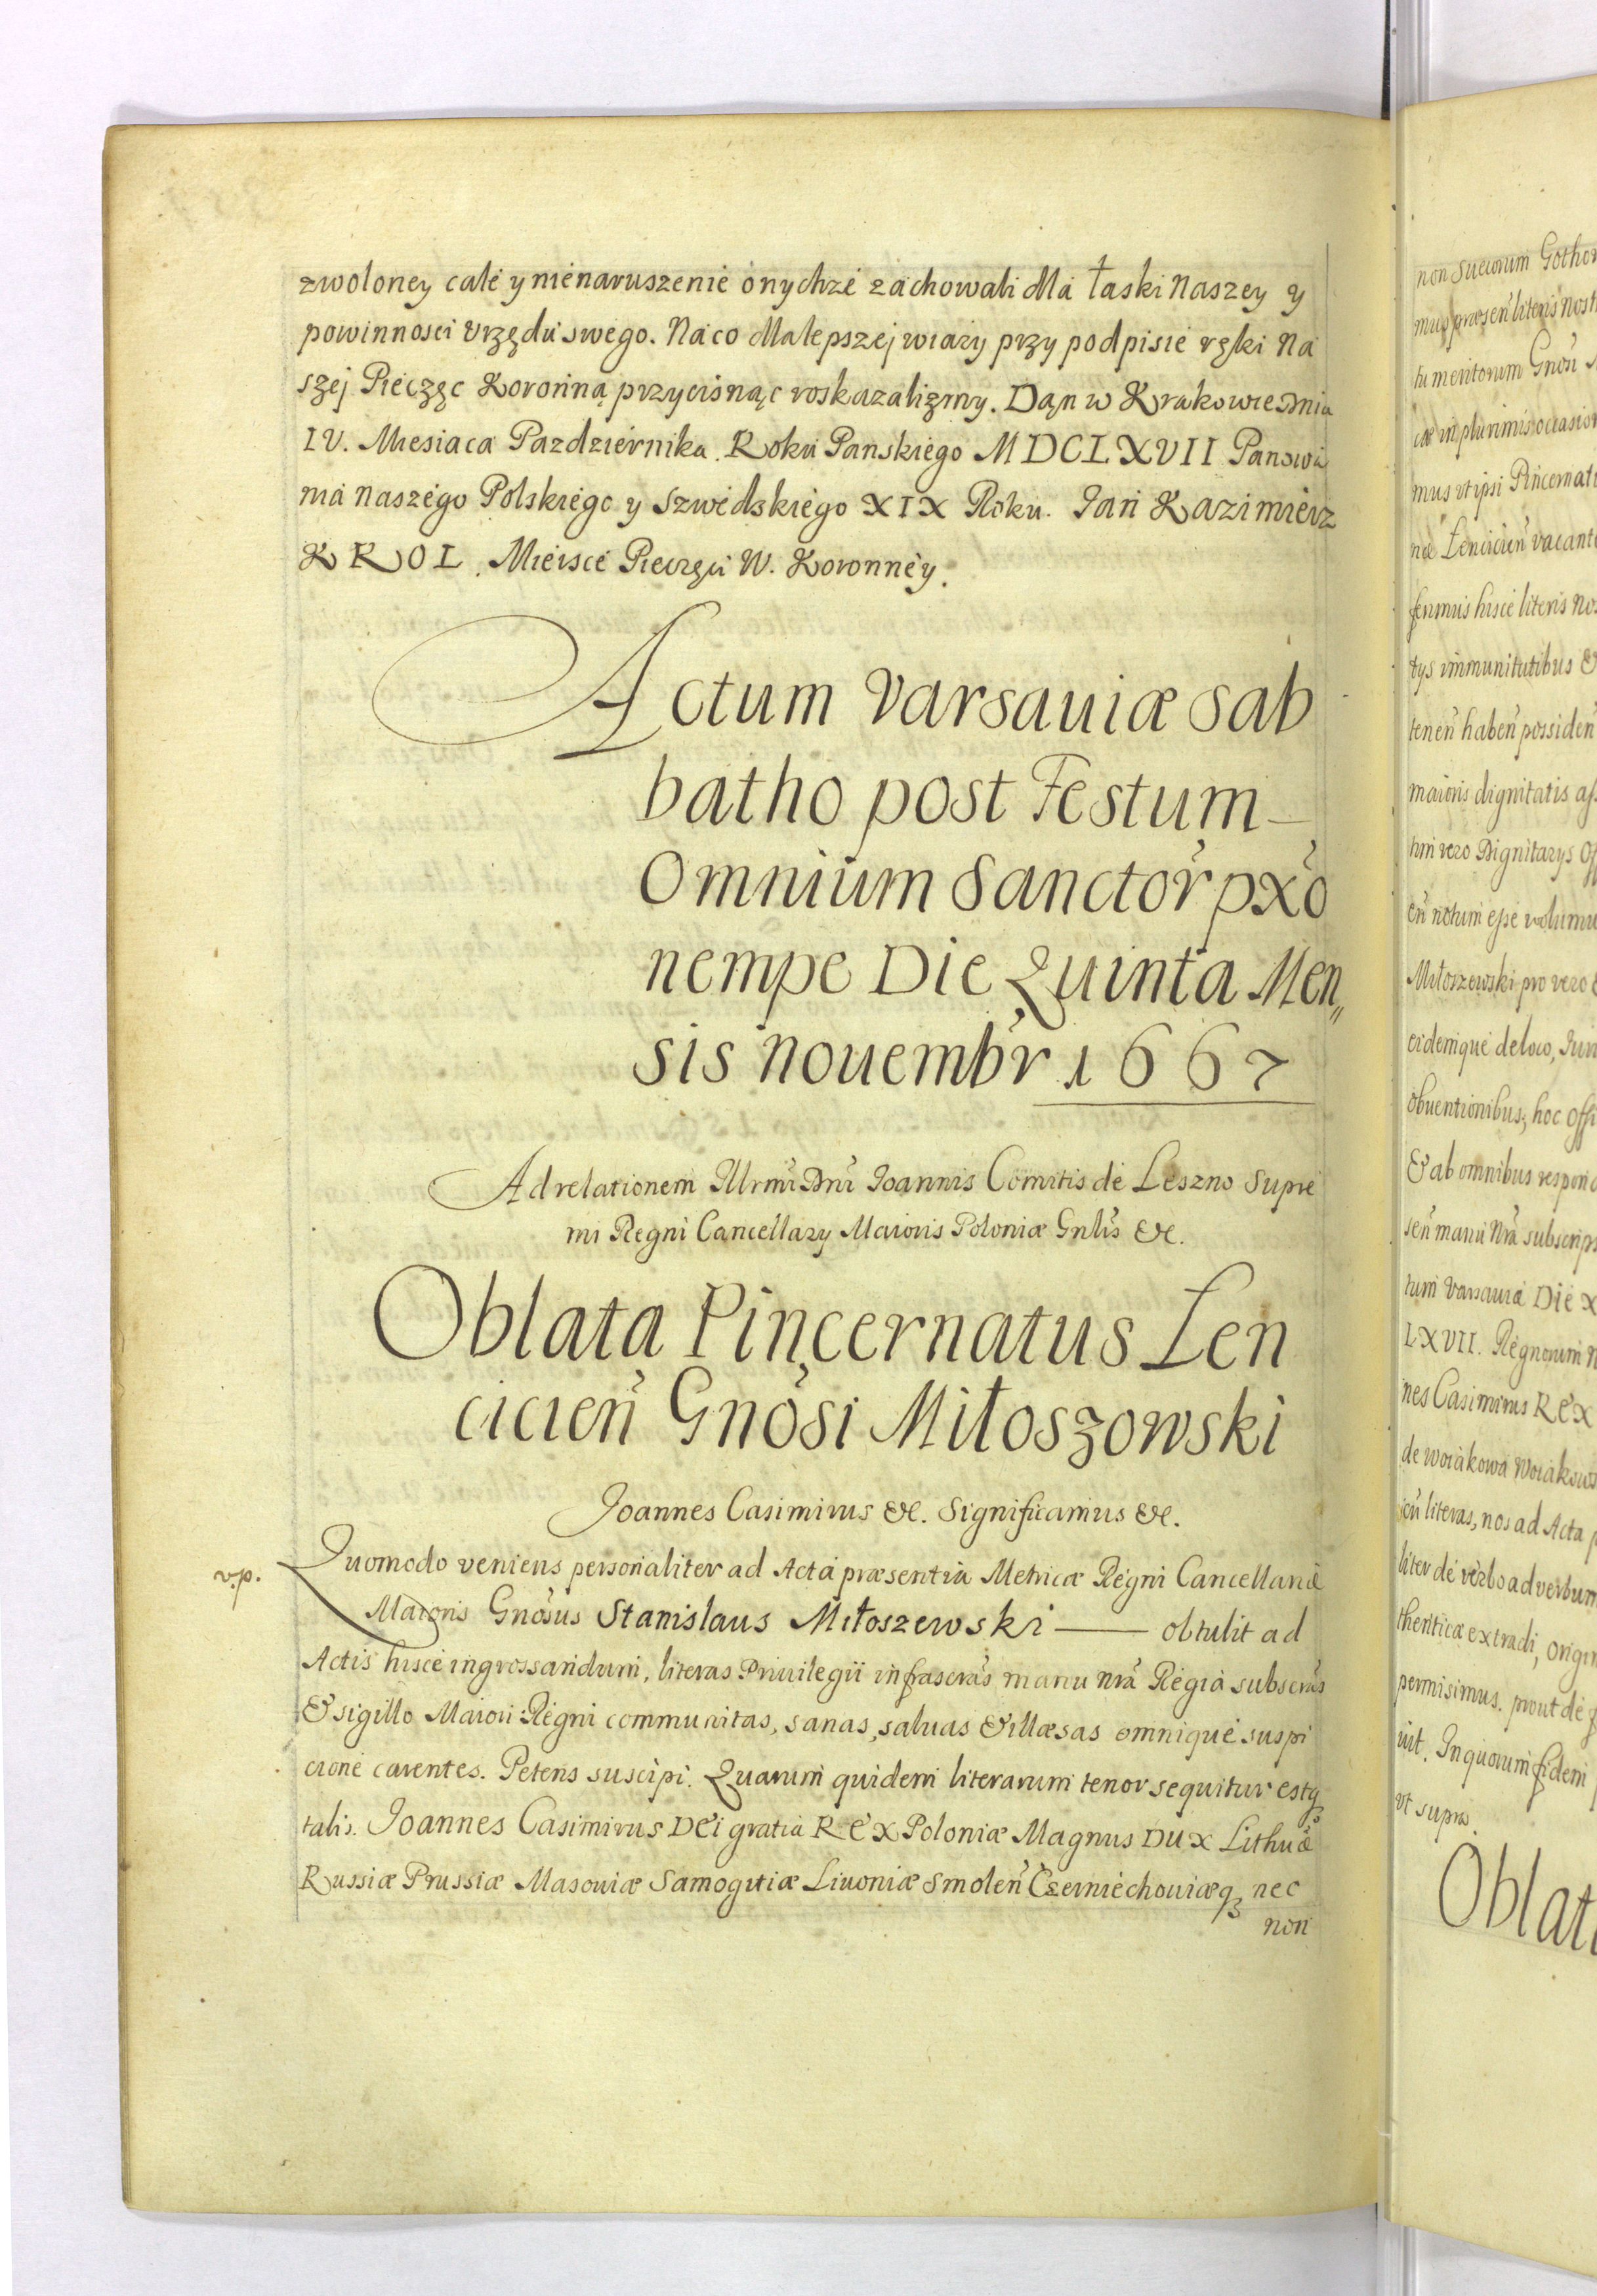 zwoloney calé y nienaruszenie onychże zachowali dla łaski Naszey y
powinnosci Vrzędu swego. Na co dla lepszej wiary przy podpisie ręki Na
szej Pieczęc Koronną przycisnąc roskazalizmy. Dąn w Krakowie Dnia
IV. Miesiaca Pazdziernika. Roku Panskiego MDCLXVII Panowa
nia naszégo Polskiégo y Szwédskiégo XIX Roku. Jan Kazimiérz
KROL. Miéisce Pieczęci W. Koronnéy.
Actum Varsauiæ sab
batho post Festum
Omnium Sanctor̃ pxõ
nempe Die Quinta Men„
sis Nouembr̃ 1667
Ad relationem Illrmi Dni Joannis Comitis de Leszno Supre
mi Regni Cancellary Maioris Poloniæ Gnlis &c.
Oblata Pincernatus Łen
cicien̄ Gnosi Miłoszowski
Joannes Casimirus &c. Significamus &c.
v.p.
Quomodo veniens personaliter ad Acta præsentia Metricæ Regni Cancellariæ
Maioris Gnosus Stanislaus Miłoszewski —— obtulit ad
Actis hisce ingrossandum, literas Priuilegii infrascras manu nra Regia subscras
& sigillo Maiori Regni communitas, sanas, saluas & illæsas omnique suspi
cione carentes. Petens suscipi. Quarum quidem literarum tenor sequitur estq3
talis. Joannes Casimirus DEi gratia REX Poloniæ Magnus DUX Lithuæ
Russiæ Prussiæ Masouiæ Samogitiæ Liuoniæ Smolen̄ Czerniechouiæq3 nec
non
non Suecorum Gothor
mus præsen̄ literis nost
tu meritorum Gnosi
in plurimis occasion
mus vt ipsi Pincernat
Łencicien̄ vacant
ferimus hisce literis nos
tys immunitatibus &
tenen̄ haben̄ possiden̄
maioris dignitatis
vero Dignitarys
notum esse volumu
Miłoszewski pro vero &
eidemque de loco,
obuentionibus, hoc Offi
& ab omnibus
sen̄ manu Nra subscrip
tum Varsauiæ Die X
LXVII. Regnorum
nes Casimirus REX
de Woiakowa Woiakows
literas, nos ad Acta
liter de verbo ad verbum
thentice extradi, origin
permisimus. prout de
uit. In quorum fidem
vt supra.
Oblat